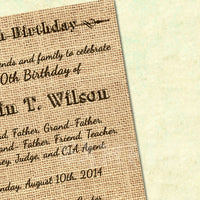 h Birthday
ends and family to celebrate
0th Birthday of
in T. Wilson
nd, Father, Grand-Father,
d, Father, Friend, Teacher,
ey, Judge, and CIA Agent.
nday, August 10th, 2014